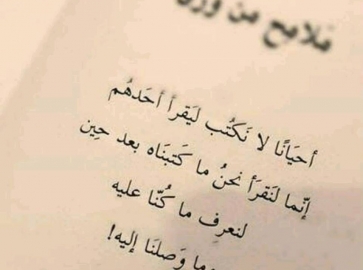 ملامح من
أحيَانًا لا نَكتُب لَيَقرأ أحَدهُم
إنّما لنَقرَأ نَحنُ ما كَتبنَاه بعد حِين
لنعرِف ما كُنّا عليه
وَصلنَا إليه!